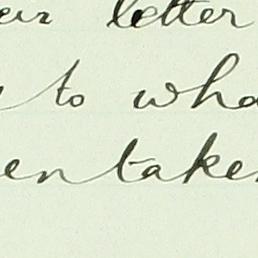 letter
to wha
en take